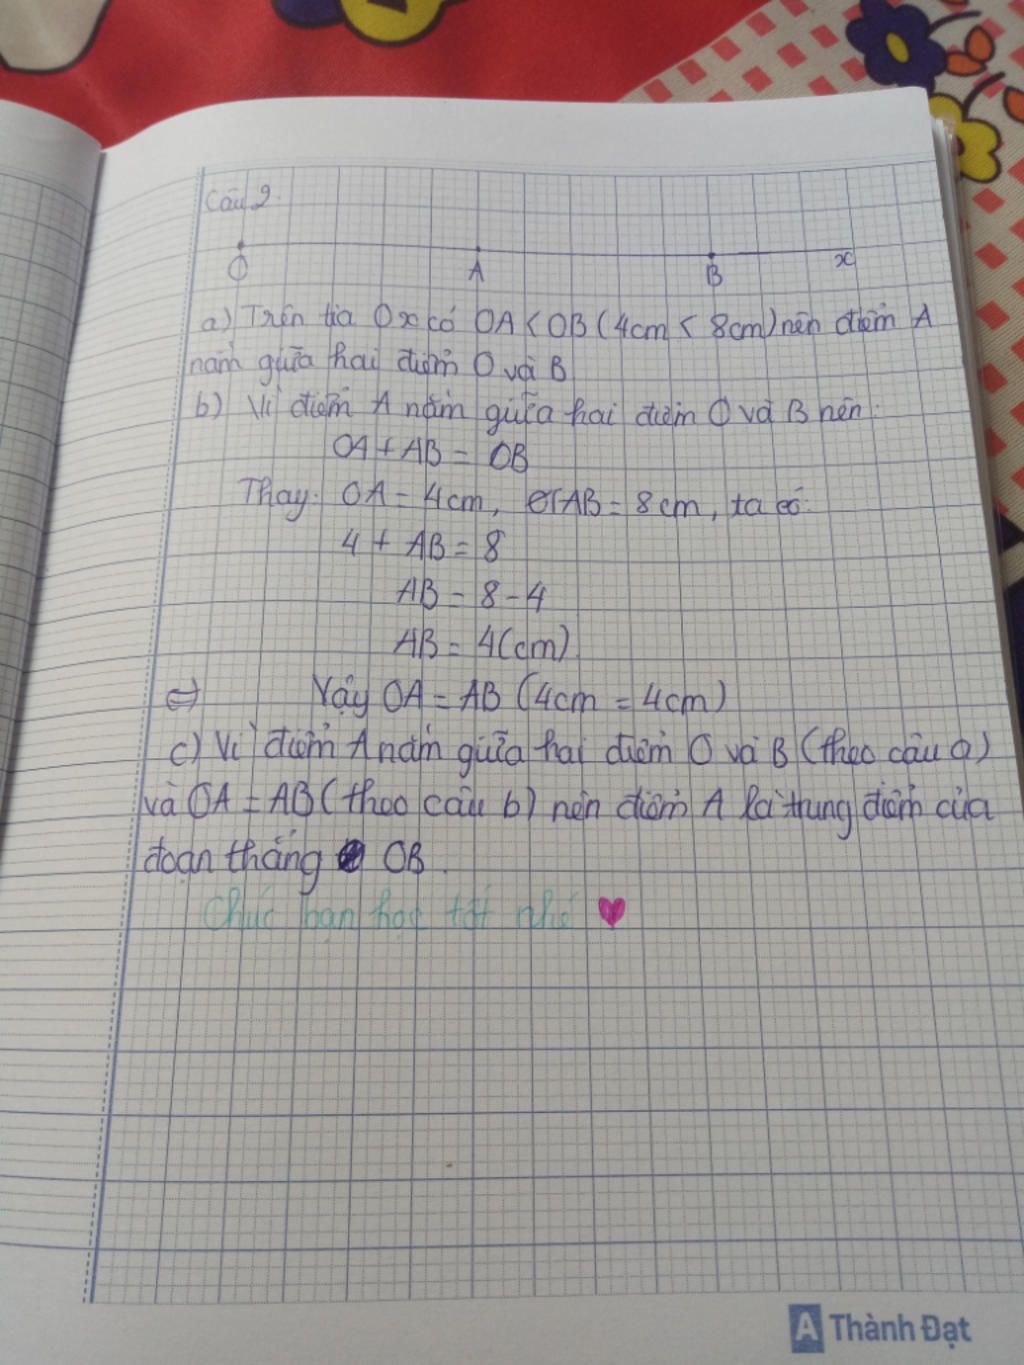 Câu 2.
O A B x
a) Trên tia Ox có OA < OB (4cm < 8cm) nên điểm A
nằm giữa hai điểm O và B
b) Vì điểm A nằm giữa hai điểm O và B nên:
OA + AB = OB
Thay: OA = 4cm, AB = 8cm, ta có:
4 + AB = 8
AB = 8 - 4
AB = 4(cm).
Vậy OA = AB (4cm = 4cm)
c) Vì điểm A nằm giữa hai điểm O và B (theo câu a)
và OA = AB (theo câu b) nên điểm A là trung điểm của
đoạn thẳng OB.
Chúc bạn học tốt nhé ♥
A Thành Đạt